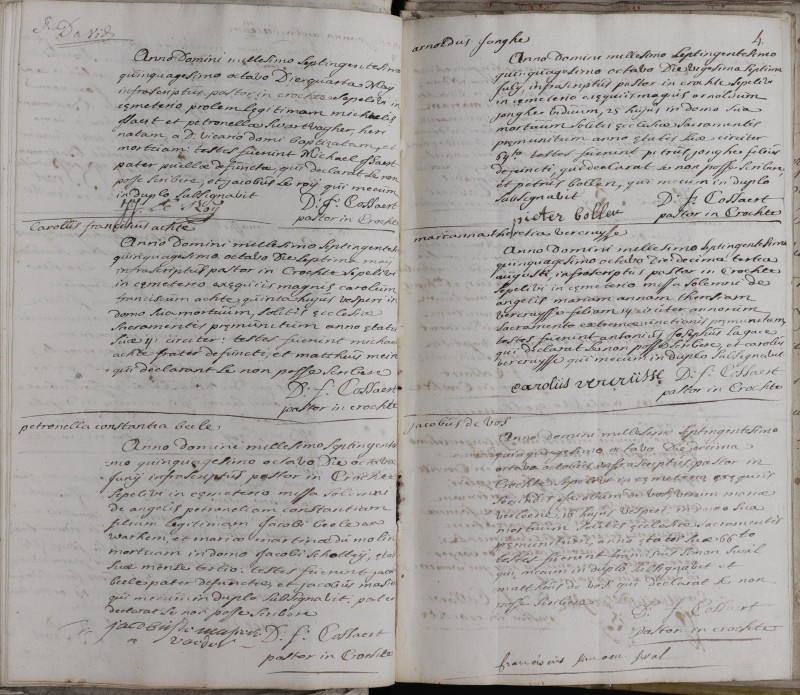 Anno Domini millesimo Septingentesimo
quinquagesimo octavo Die quarta May
infrascriptus pastor in crochte Sepelivi in
cæmeterio prolem legitimam michaelis
et petronella
natam, a D. vicario domi baptizatam, et
mortuam: testes fuerunt Michael
pater puellæ defunctæ, qui declarat se non
posse scribere, et jacobus le roij qui mecum
in duplo subsignavit
D. f. Cossaert
pastor in Crochte
Carolus franciscus achte
Anno Domini millesimo Septingentesi
quinquagesimo octavo Die Septima maij
infrascriptus pastor in Crochte Sepelivi
in cæmeterio exequiis magnis carolum
franciscum achte, quinta hujus vesperi in
domo sua mortuum, solitis ecclesiæ
Sacramentis præmunitum anno ætatis
suæ circiter: testes fuerunt michael
achte frater defuncti, et mattheus
qui declarant se non posse scribere
D. f. Cossaert
pastor in Crochte
petronella constantia beele
Anno Domini millesimo Septingentesi
mo quinquagesimo octavo Die octava
junij infrascriptus pastor in Crochte
Sepelivi in cæmeterio missa solemni
de angelis petronellam constantiam
filiam legitimam jacobi beele ex
warhem, et mariæ martinæ du molin
mortuam in domo jacobi ætatis
suæ mense tertio: testes fuerunt jacobus
beele pater defunctæ, et jacobus
qui mecum in duplo subsignavit: pater
declarat se non posse scribere
D. f. Cossaert
pastor in Crochte
4
arnoldus jonghe
Anno Domini millesimo Septingentesimo
quinquagesimo octavo Die vigesima septima
july, infrascriptus pastor in crochte Sepelivi
in cæmeterio exequiis magnis arnoldum
jonghe viduum, 25 hujus in domo sua
mortuum solitis ecclesiæ Sacramentis
præmunitum anno ætatis suæ circiter
testes fuerunt petrus jonghe filius
defuncti, qui declarat se non posse scribere,
et petrus bollen, qui mecum in duplo
subsignavit
D. f. Cossaert
pieter bollen
pastor in Crochte
marianna theresia vercruysse
Anno Domini millesimo Septingentesimo
quinquagesimo octavo Die decima tertia
augusti, infrascriptus pastor in Crochte
Sepelivi in cæmeterio missa solemni de
angelis mariam annam theresiam
vercruysse filiam 14 circiter annorum
Sacramento extremæ unctionis præmunitam
testes fuerunt antonius josephus la gace
qui declarat se non posse scribere, et carolus
vercruysse qui mecum in duplo subsignavit
D. f. Cossaert
carolus vercrüsse
pastor in Crochte
jacobus de vos
Anno domini millesimo Septingentesimo
quinquagesimo octavo Die decima
octava octobris infrascriptus pastor in
Crochte Sepelivi in cæmeterio exequiis
de vos virum mariæ
verleene, 16 hujus vesperi in domo sua
mortuum, solitis ecclesiæ Sacramentis
præmunitum, anno ætatis suæ 66to
testes fuerunt franciscus simon
qui mecum in duplo subsignavit et
mattheus de vos qui declarat se non
posse scribere
D. f. Cossaert
pastor in crochte